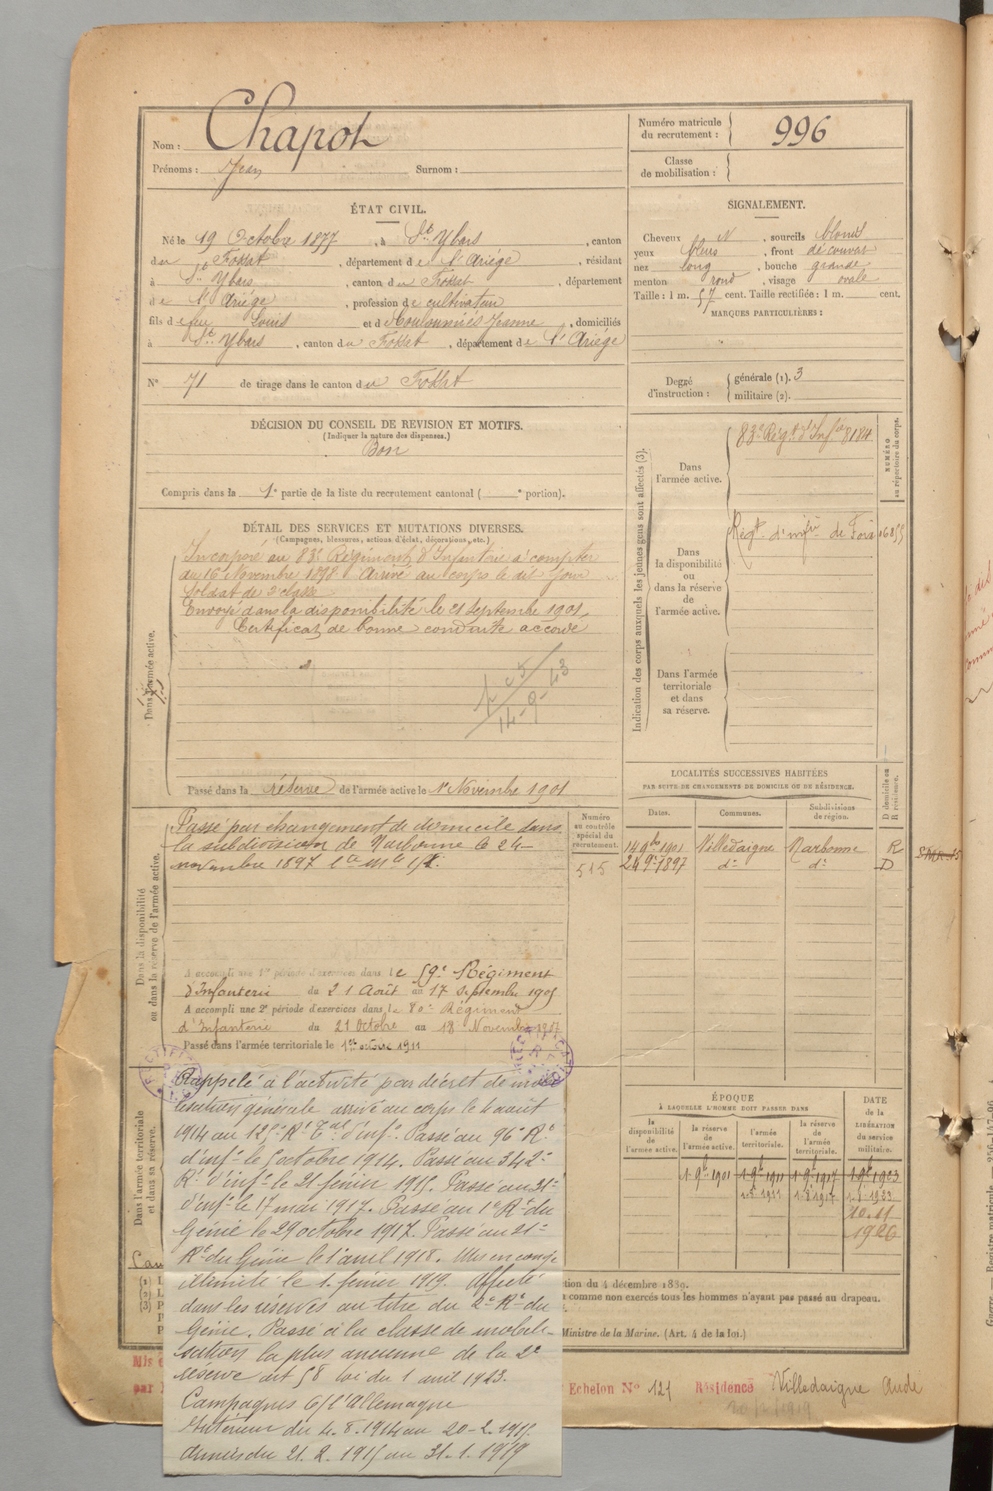 Nom : Chapot
Prénoms : Jean Surnom :
Numéro matricule du recrutement : 996
Classe de mobilisation :
ÉTAT CIVIL.
Né le 19 Octobre 1877, à St Ybars, canton
du Fossat, département de l'Ariége, résidant
à St Ybars, canton du Fossat, département
de l'Ariége, profession de cultivateur
fils de feu Louis et de Jeanne, domiciliés
à St Ybars, canton du Fossat, département de l'Ariége
N° 71 de tirage dans le canton du Fossat
SIGNALEMENT.
Cheveux N, sourcils blonds
yeux bleus, front découvert
nez long, bouche grande
menton rond, visage ovale
Taille : 1 m. 57 cent. Taille rectifiée : 1 m. cent.
MARQUES PARTICULIÈRES :
Degré d'instruction : générale (1). 3
militaire (2).
DÉCISION DU CONSEIL DE REVISION ET MOTIFS.
(Indiquer la nature des dispenses.)
Bon
Compris dans la 1e partie de la liste du recrutement cantonal ( e portion).
DÉTAIL DES SERVICES ET MUTATIONS DIVERSES.
(Campagnes, blessures, actions d'éclat, décorations, etc.)
Dans l'armée active.
Incorporé au 83e Régiment d'Infanterie à compter
du 16 Novembre 1898. Arrivé au corps le dit jour
Soldat de 2e classe
Envoyé dans la disponibilité le 21 septembre 1901.
Certificat de bonne conduite accordé
Passé dans la réserve de l'armée active le 1er Novembre 1901
Indication des corps auxquels les jeunes gens sont affectés (3).
NUMÉRO au répertoire du corps.
Dans l'armée active.
83e Régt d'Infie 8184
Dans la disponibilité ou dans la réserve de l'armée active.
Régt d'infie de Foix 16855
Dans l'armée territoriale et dans sa réserve.
LOCALITÉS SUCCESSIVES HABITÉES
PAR SUITE DE CHANGEMENTS DE DOMICILE OU DE RÉSIDENCE.
Dates. Communes. Subdivisions de région. D domicile ou R résidence.
14 9bre 1901 Villedaigne Narbonne R
24 9bre 1897 do do D
Dans la disponibilité ou dans la réserve de l'armée active.
Numéro au contrôle spécial du recrutement.
515
Passé par changement de domicile dans
la subdivision de Narbonne le 24
novembre 1897
A accompli une 1re période d'exercices dans le 59e Régiment
d'Infanterie du 21 Août au 17 Septembre 1905
A accompli une 2e période d'exercices dans le 80e Régiment
d'Infanterie du 21 Octobre au 18 Novembre 1907
Passé dans l'armée territoriale le 1er octobre 1911
Dans l'armée territoriale et dans sa réserve.
Rappelé à l'activité par décret de mobi
lisation générale arrivé au corps le 4 août
1914 au 125e Rt Tal d'infie. Passé au 96e Rt
d'infie le 5 octobre 1914. Passé au 342e
Rt d'infie le 21 février 1915. Passé au 31e
d'infie le 17 mai 1917. Passé au 1er Rt du
Génie le 29 octobre 1917. Passé au 21e
Rt du Génie le 1er avril 1918. Mis en congé
illimité le 1. février 1919. Affecté
dans les réserves au titre du 2e Rt du
Génie. Passé à la classe de mobili-
sation la plus ancienne de la 2e
réserve art 58 loi du 1 avril 1923.
Campagnes C/ l'Allemagne
Intérieur du 4.8.1914 au 20-2.1915
Armées du 21.2.1915 au 31.1.1919
ÉPOQUE
À LAQUELLE L'HOMME DOIT PASSER DANS
la disponibilité de l'armée active.
la réserve de l'armée active.
l'armée territoriale.
la réserve de l'armée territoriale.
DATE de la LIBÉRATION du service militaire.
1 9bre 1901 1 9bre 1911 1 9bre 1917 1 9bre 1923
10.11
1926
tion du 4 décembre 1889.
comme non exercés tous les hommes n'ayant pas passé au drapeau.
Ministre de la Marine. (Art. 4 de la loi.)
Echelon N° 121 Résidence Villedaigne Aude